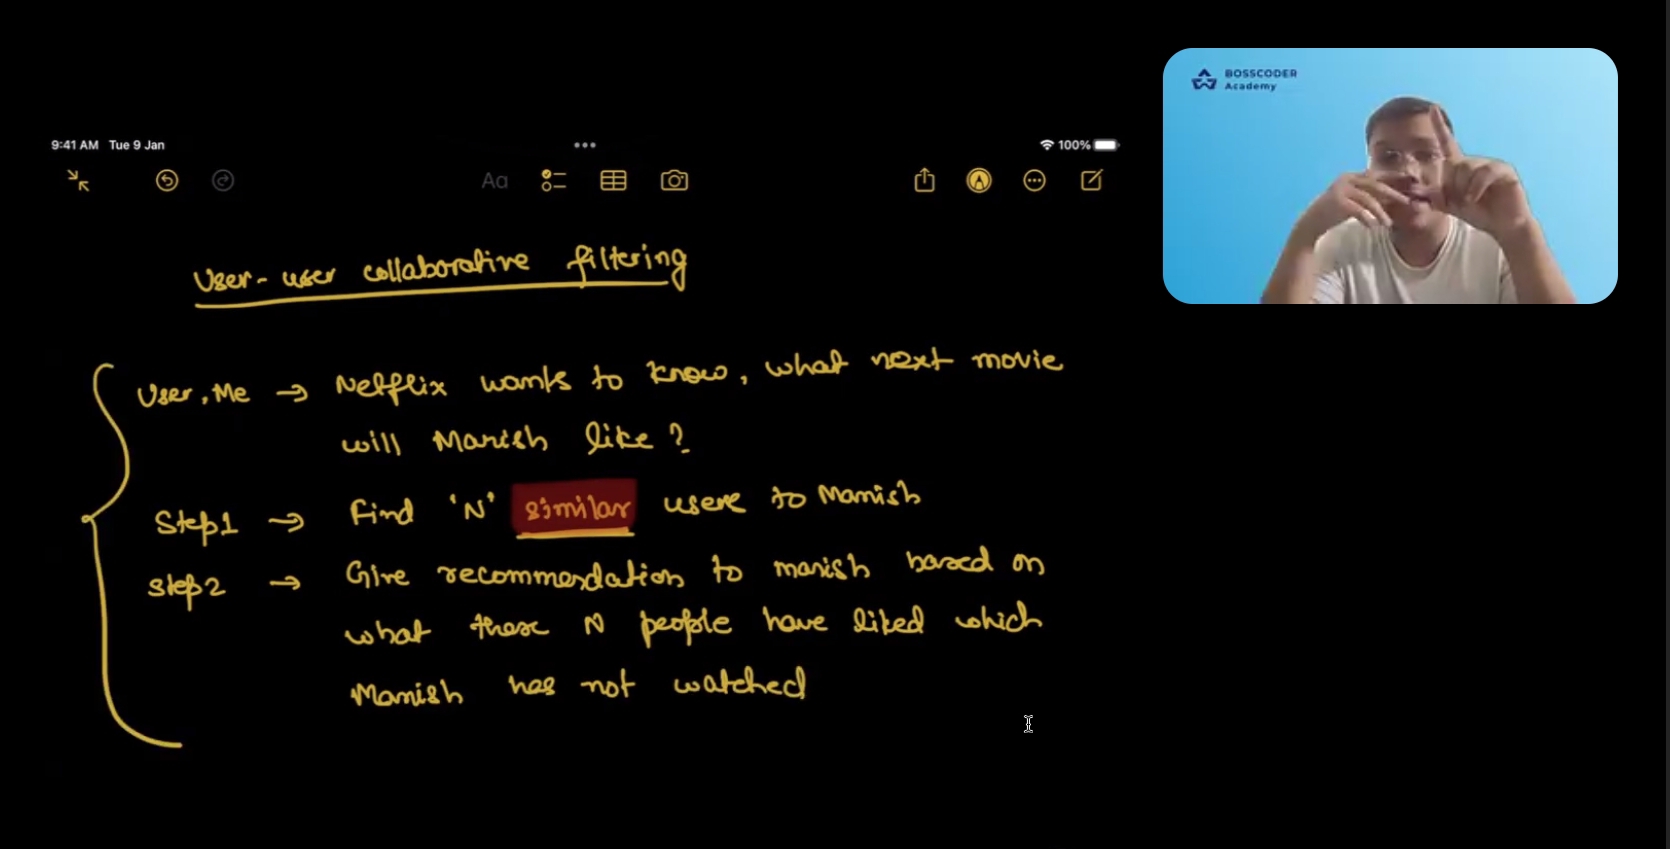 BOSSCODER
Academy
9:41 AM Tue 9 Jan
100%
Aa
User-user collaborative filtering
User, Me → Netflix wants to know, what next movie
will Manish like?
Step1 → Find 'N' similar users to Manish
Step2 → Give recommendation to manish based on
what these N people have liked which
Manish has not watched